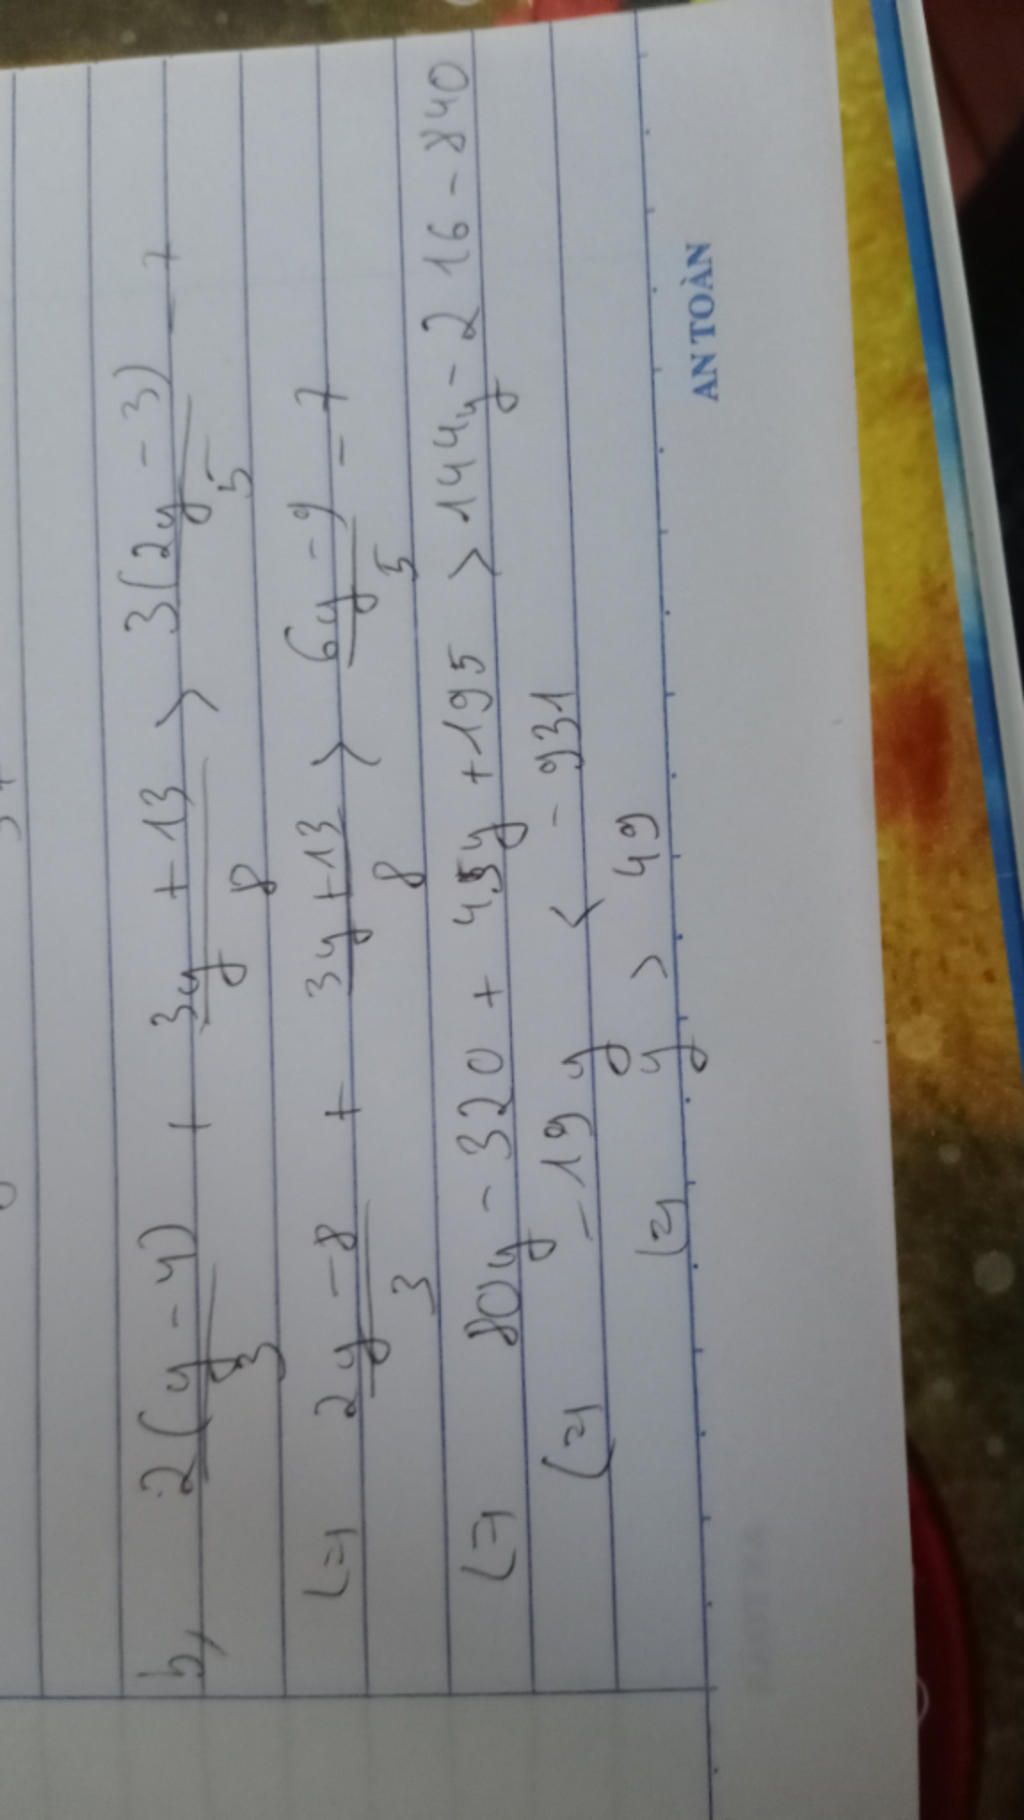 b, 2(y-4)/3 + 3y+13/8 > 3(2y-3)/5 - 7
<=> 2y-8/3 + 3y+13/8 > 6y-9/5 - 7
<=> 80y - 320 + 45y + 195 > 144y - 216 - 840
<=> -19y < -931
<=> y > 49
AN TOÀN